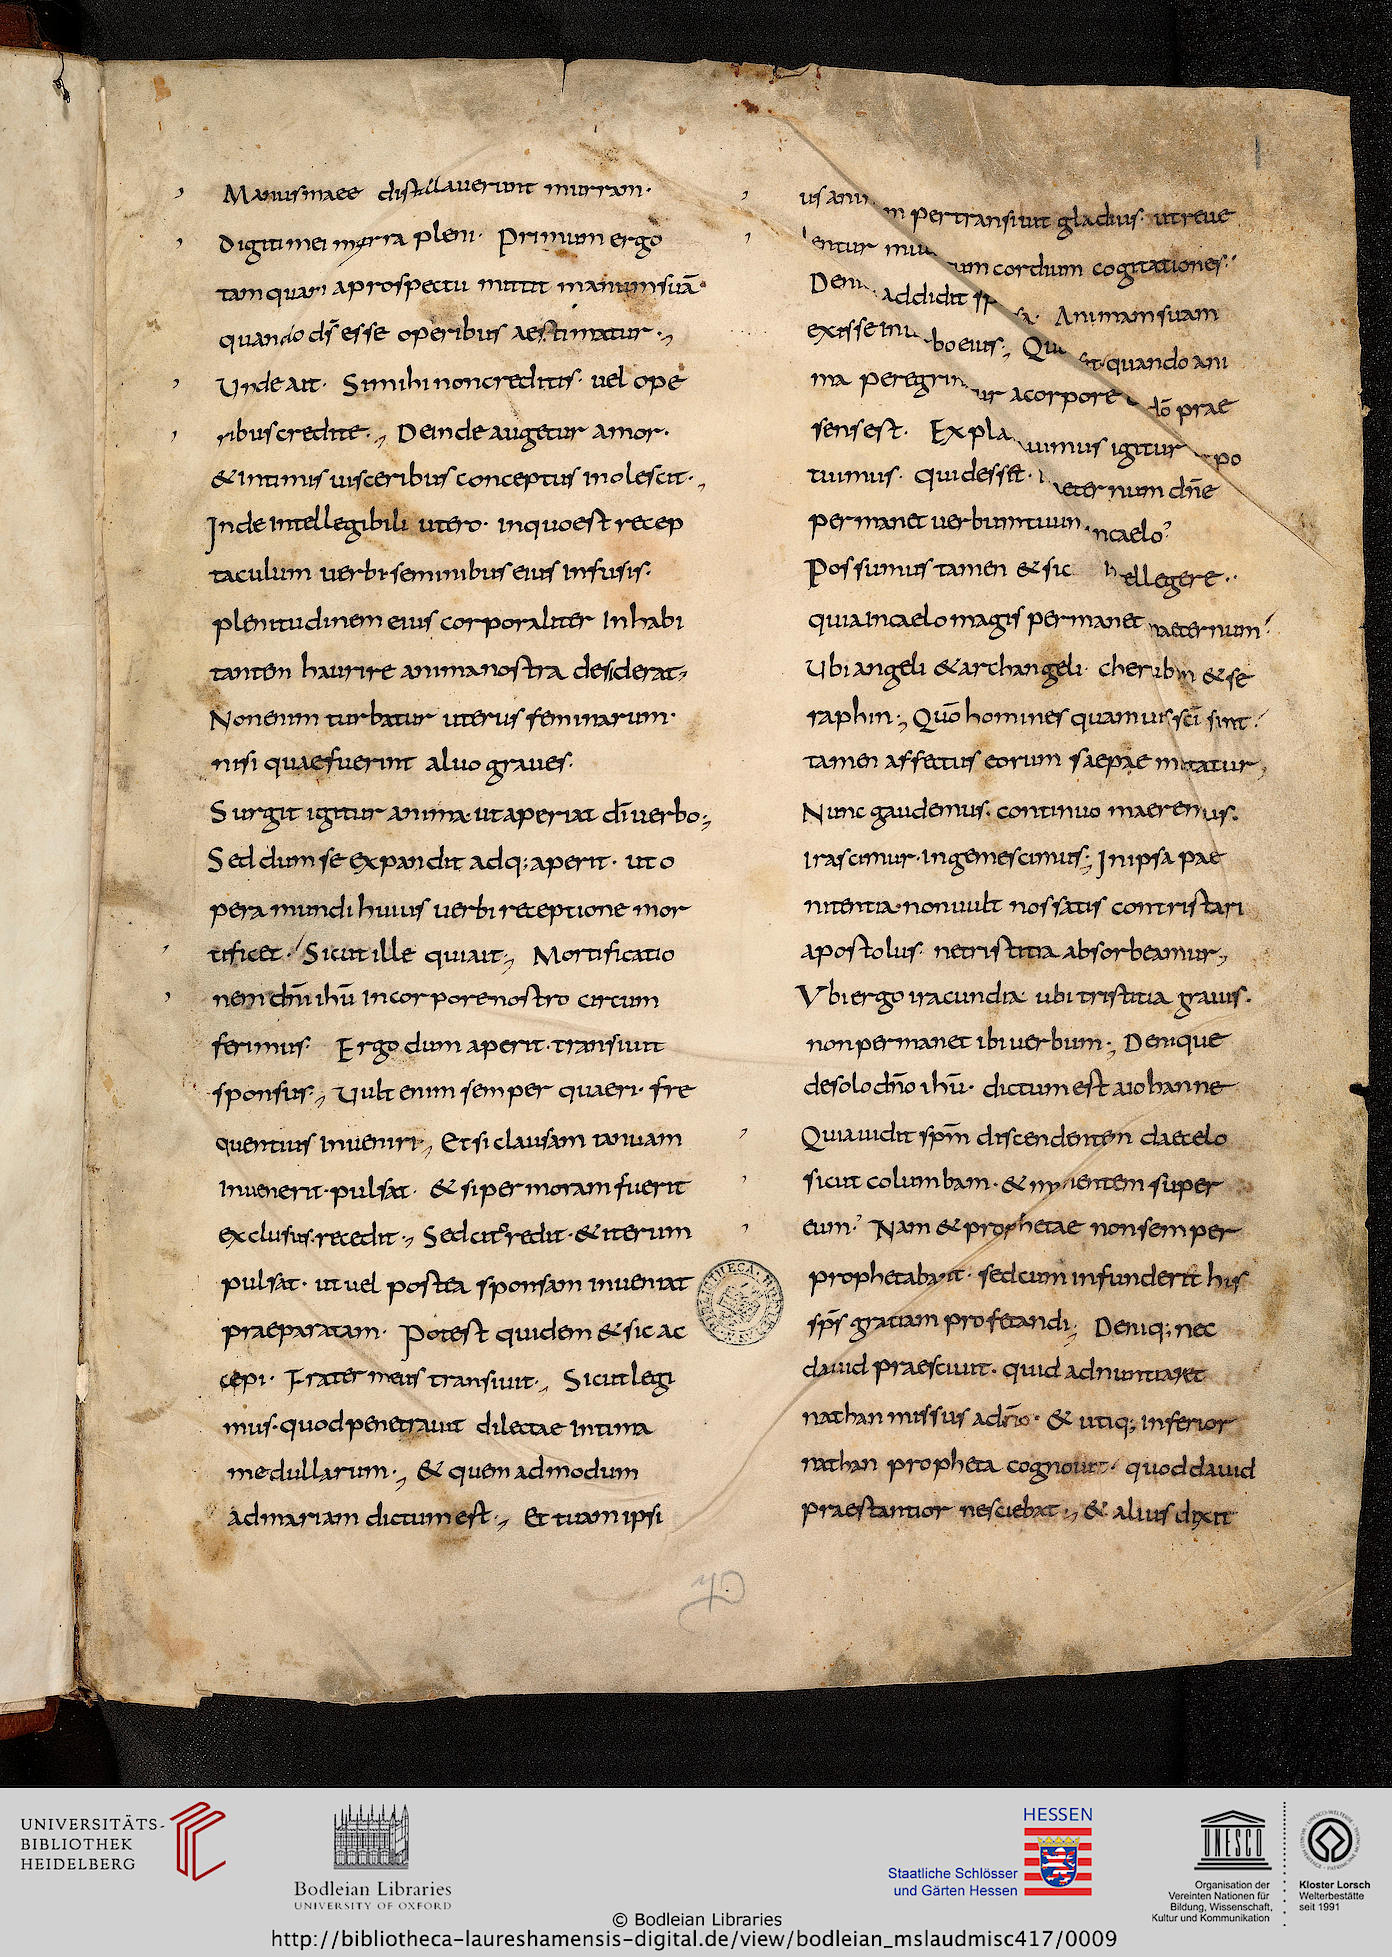 Manus maee distillauerunt murram·
digiti mei myrra pleni· Primum ergo
tamquam aprospectu mittit manum suā·
quando dš esse operibus aestimatur·,
Unde ait· Si mihi non creditis· uel ope
ribus credite·, Deinde augetur amor·
& intimis uisceribus conceptus inolescit·,
Inde intellegibili utero· inquo est recep
taculum uerbi· seminibus eius infusis·
plenitudinem eius corporaliter inhabi
tantem haurire anima nostra desiderat·,
Non enim turbatur uterus feminarum·
nisi quae fuerint aluo graues·
Surgit igitur anima· ut aperiat dī uerbo·,
Sed dum se expandit adq; aperit· ut o
pera mundi huius uerbi receptione mor
tificet· Sicut ille qui ait·, Mortificatio
nem dn̄i ihū in corpore nostro circum
ferimus· Ergo dum aperit· transiuit
sponsus·, Uult enim semper quaeri· fre
quentius inueniri·, Et si clausam ianuam
inuenerit· pulsat· & si per moram fuerit
exclusus· recedit·, Sed cito redit· & iterum
pulsat· ut uel postea sponsam inueniat
praeparatam· Potest quidem & sic ac
cepi· Frater meus transiuit·, Sicut legi
mus· quod penetrauit dilectae intima
medullarum·, & quem admodum
ad mariam dictum est·, Et tuam ipsi
us anim m pertransiuit gladius· ut reue
lentur mu rum cordium cogitationes·
Deni addidit ip sa· Animam suam
exisse in u bo eius·, Qui st· quando ani
ma peregrin ur a corpore dō prae
sens est· Expla uimus igitur po
tuimus· quid esset· aeternum dn̄e
permanet uerbum tuum incaelo
Possumus tamen & sic in ellegere·
quia incaelo magis permanet inaeternum
Ubi angeli & archangeli· cherubin & se
raphin·, Quō homines quamuis scī sint·
tamen affectus eorum saepae mutatur,
Nunc gaudemus· continuo maeremus·
irascimur· ingemescimus·, In ipsa pae
nitentia· non uult nos satis contristari
apostolus· ne tristitia absorbeamur·,
Vbi ergo iracundia· ubi tristitia grauis·
non permanet ibi uerbum·, Denique
de solo dn̄o ihū· dictum est a iohanne
Quia uidit spm̄ discendentem daecelo
sicut columbam· & manentem super
eum· Nam & prophetae non semper
prophetabant· sed cum infunderit his
sps̄ gratiam profetandi·, Deniq; nec
dauid praesciuit· quid adnuntiaret
nathan missus a dn̄o· & utiq; inferior
nathan propheta cognouit· quod dauid
praestantior nesciebat·, & alius dixit
1
UNIVERSITÄTS-
BIBLIOTHEK
HEIDELBERG
Bodleian Libraries
UNIVERSITY OF OXFORD
HESSEN
Staatliche Schlösser
und Gärten Hessen
UNESCO
Organisation der
Vereinten Nationen für
Bildung, Wissenschaft,
Kultur und Kommunikation
Kloster Lorsch
Welterbestätte
seit 1991
© Bodleian Libraries
http://bibliotheca-laureshamensis-digital.de/view/bodleian_mslaudmisc417/0009